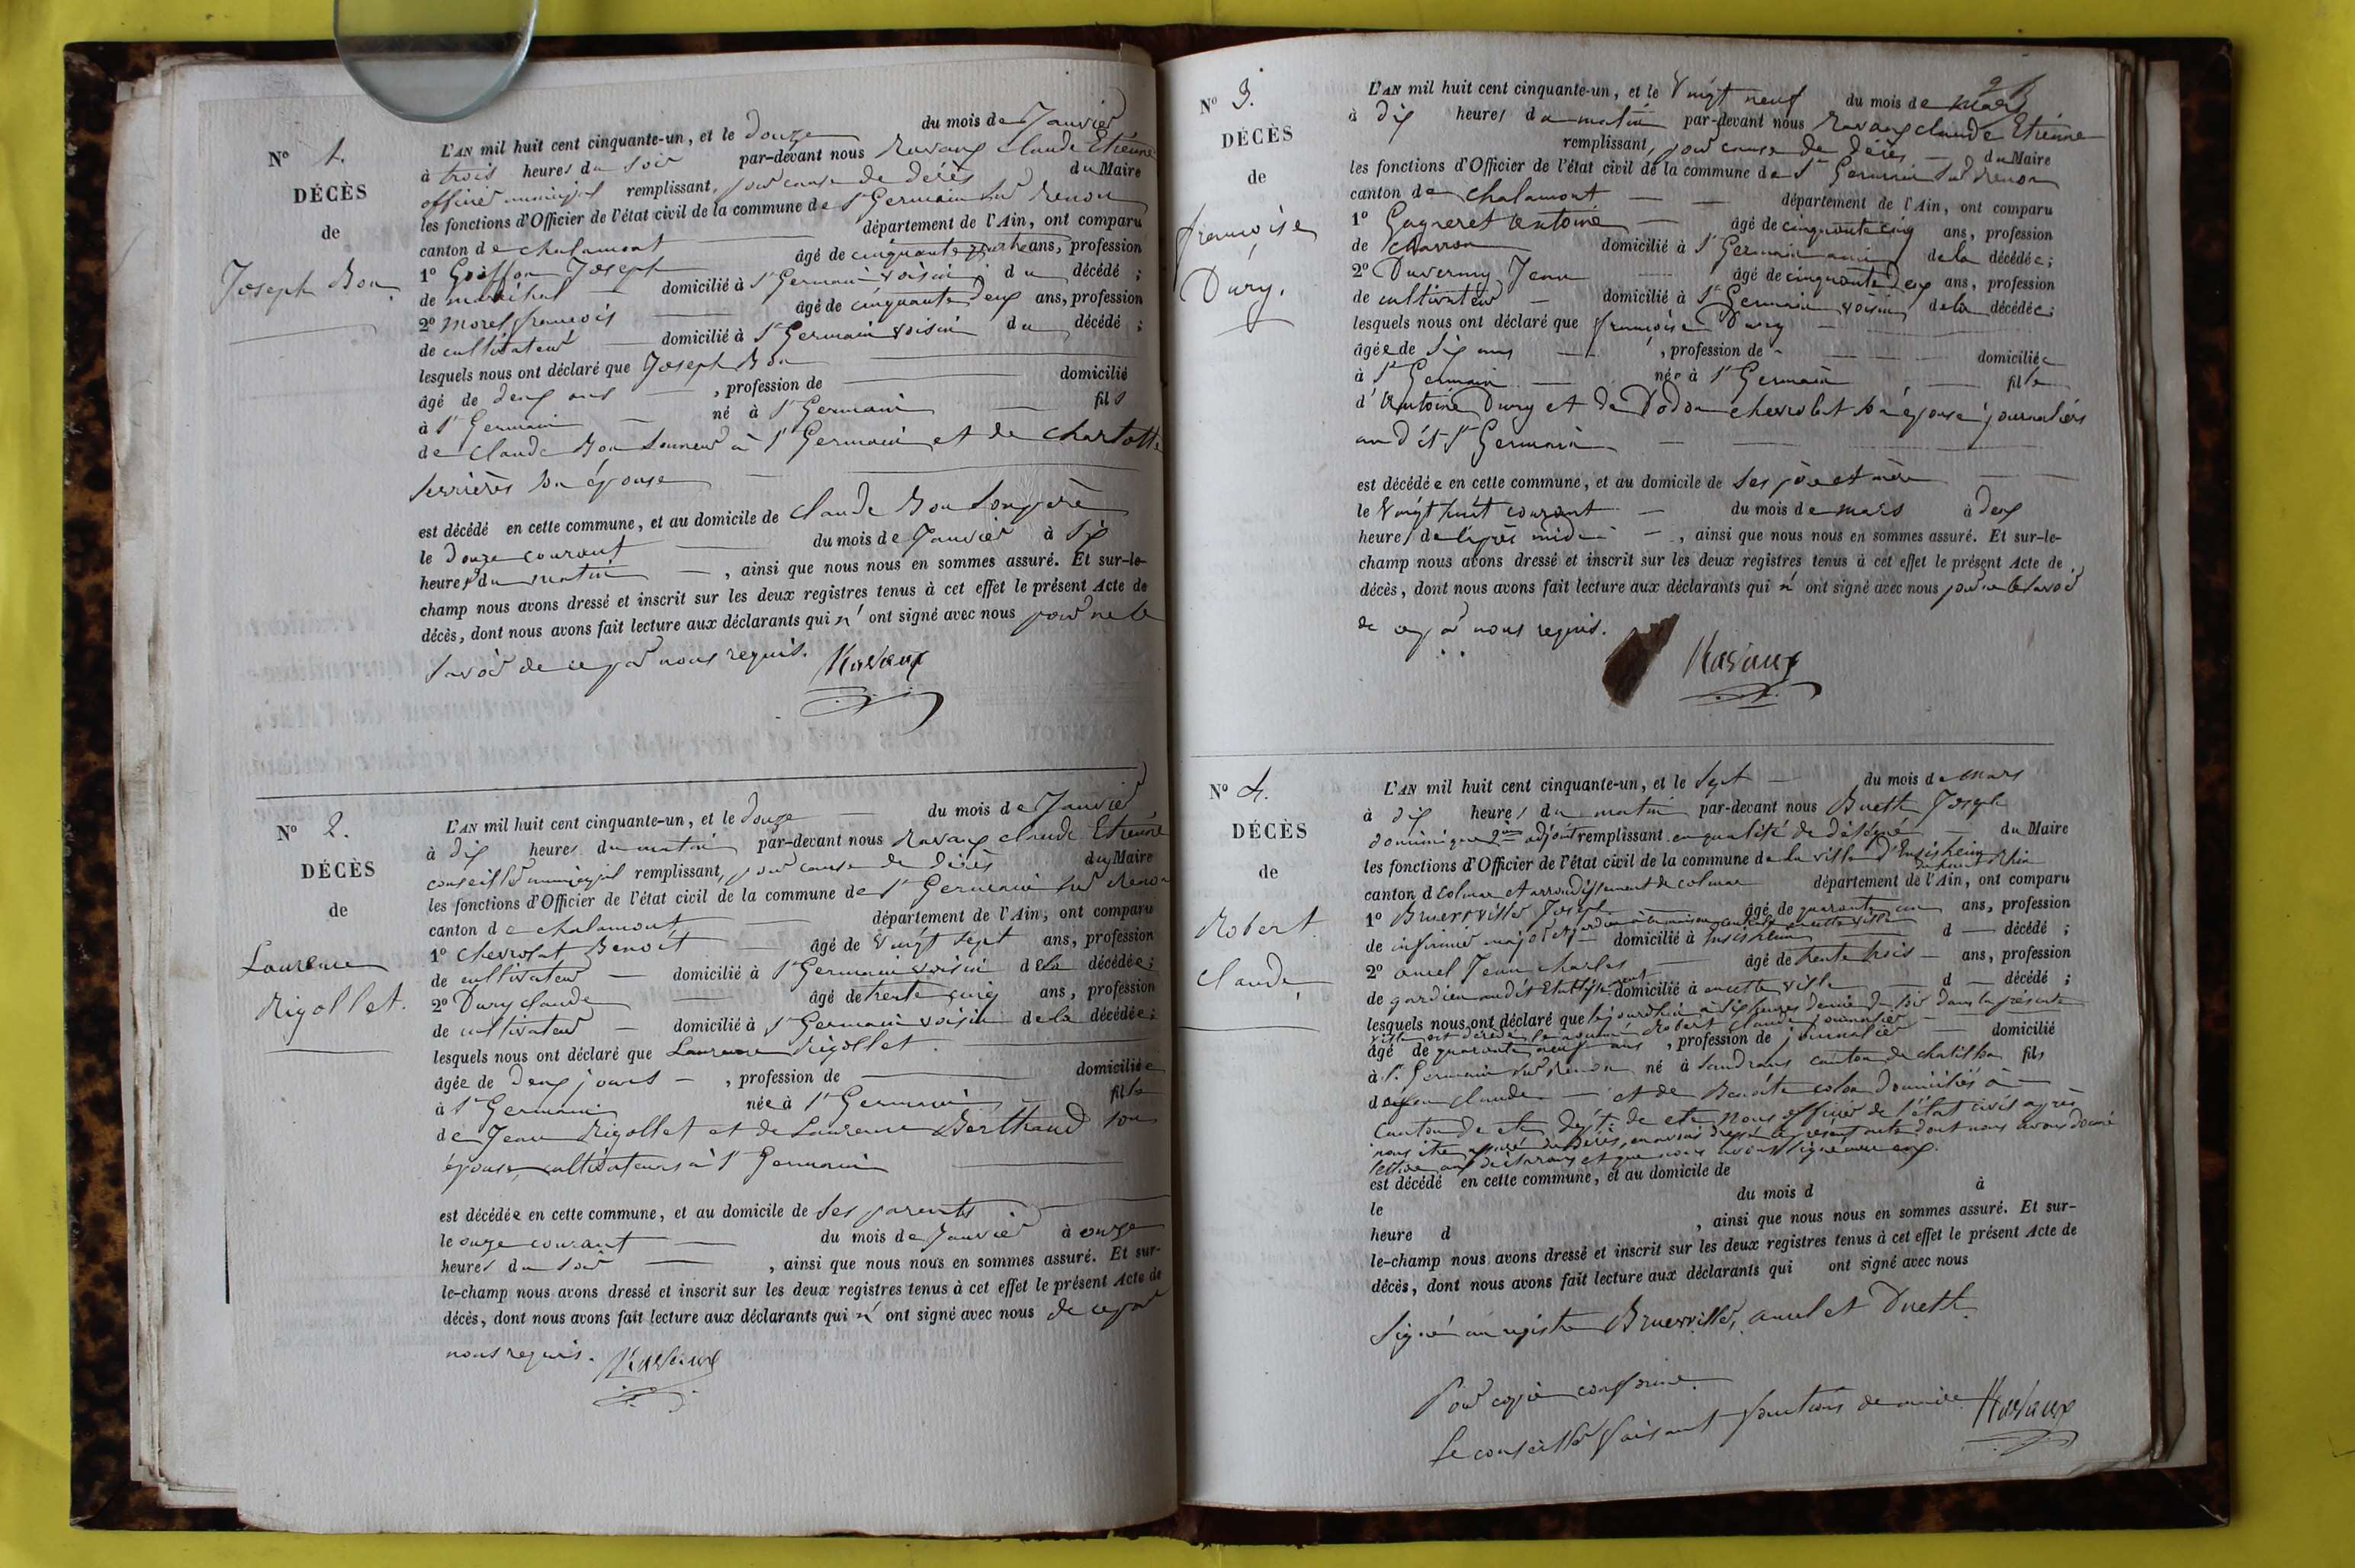 N° 1.
DÉCÈS
de
Joseph Bon
L'AN mil huit cent cinquante-un, et le douze du mois de Janvier
à trois heures du soir par-devant nous Ravaux Claude Etienne
officier municipal remplissant, pour cause de décès du Maire
les fonctions d'Officier de l'état civil de la commune de St Germain sur Renon
canton de chalamont département de l'Ain, ont comparu
1° Goiffon Joseph âgé de cinquante quatre ans, profession
de maréchal domicilié à St Germain voisin du décédé;
2° Morel françois âgé de cinquante deux ans, profession
de cultivateur domicilié à St Germain voisin du décédé;
lesquels nous ont déclaré que Joseph Bon
âgé de deux ans, profession de domicilié
à St Germain né à St Germain fils
de Claude Bon sonneur à St Germain et de Charlotte
Serrières son épouse
est décédé en cette commune, et au domicile de Claude Bon son père
le douze courant du mois de Janvier à six
heures du matin, ainsi que nous nous en sommes assuré. Et sur-le-
champ nous avons dressé et inscrit sur les deux registres tenus à cet effet le présent Acte de
décès, dont nous avons fait lecture aux déclarants qui n' ont signé avec nous pour ne le
savoir de ce par nous requis. Ravaux
N° 2.
DÉCÈS
de
Laurence
Rigollet.
L'AN mil huit cent cinquante-un, et le douze du mois de Janvier
à dix heures du matin par-devant nous Ravaux Claude Etienne
conseiller municipal remplissant, pour cause de décès du Maire
les fonctions d'Officier de l'état civil de la commune de St Germain sur Renon
canton de chalamont département de l'Ain, ont comparu
1° Chevrolat Benoit âgé de vingt sept ans, profession
de cultivateur domicilié à St Germain voisin de la décédée;
2° Dury Claude âgé de trente cinq ans, profession
de cultivateur domicilié à St Germain voisin de la décédée;
lesquels nous ont déclaré que Laurence Rigollet.
âgée de deux jours, profession de domiciliée
à St Germain née à St Germain fille
de Jean Rigollet et de Laurence Berthaud son
épouse, cultivateurs à St Germain
est décédée en cette commune, et au domicile de ses parents
le onze courant du mois de Janvier à onze
heures du soir, ainsi que nous nous en sommes assuré. Et sur-
le-champ nous avons dressé et inscrit sur les deux registres tenus à cet effet le présent Acte de
décès, dont nous avons fait lecture aux déclarants qui n' ont signé avec nous de ce par
nous requis. Ravaux
N° 3.
DÉCÈS
de
françoise
Dury.
L'AN mil huit cent cinquante-un, et le Vingt neuf du mois de Mars
à dix heures du matin par-devant nous Ravaux Claude Etienne
remplissant, pour cause de décès du Maire
les fonctions d'Officier de l'état civil de la commune de St Germain sur Renon
canton de Chalamont département de l'Ain, ont comparu
1° Gagneret Antoine âgé de cinquante cinq ans, profession
de charron domicilié à St Germain ami de la décédée;
2° Duvernay Jean âgé de cinquante deux ans, profession
de cultivateur domicilié à St Germain voisin de la décédée;
lesquels nous ont déclaré que françoise Dury
âgée de six ans, profession de domiciliée
à St Germain née à St Germain fille
d'Antoine Dury et de Dodon Chevrolat son épouse journaliers
au dit St Germain
est décédée en cette commune, et au domicile de ses père et mère
le Vingt huit courant du mois de mars à deux
heures de l'après midi, ainsi que nous nous en sommes assuré. Et sur-le-
champ nous avons dressé et inscrit sur les deux registres tenus à cet effet le présent Acte de
décès, dont nous avons fait lecture aux déclarants qui n' ont signé avec nous pour ne le savoir
de ce par nous requis.
Ravaux
N° 4.
DÉCÈS
de
Robert
Claude
L'AN mil huit cent cinquante-un, et le sept du mois de Mars
à dix heures du matin par-devant nous Bueth Joseph
dominique 2me adjoint remplissant en qualité de délégué du Maire
les fonctions d'Officier de l'état civil de la commune de la ville d'Ensisheim
du haut Rhin
canton de Colmar et arrondissement de colmar département de l'Ain, ont comparu
1° Bruerviller Joseph âgé de quarante un ans, profession
de infirmier major et gardien à la maison centrale en cette ville domicilié à Ensisheim d décédé;
2° amel Jean Charles âgé de trente trois ans, profession
de gardien au dit Etablissement domicilié à en cette ville d décédé;
lesquels nous ont déclaré que aujourd'hui à six heures demie du soir dans la présente
ville est décédé le nommé Robert Claude journalier
âgé de quarante neuf ans, profession de journalier domicilié
à St Germain sur Renon né à Sandrans canton de chatillon fils
de feu Claude et de Benoite colon domiciliés à
canton de etc dépt de etc Nous officier de l'état civil après
nous être assuré du décès, en avons dressé le présent acte dont nous avons donné
lecture aux déclarans et que nous avons signé avec eux.
est décédé en cette commune, et au domicile de
le du mois d à
heure d, ainsi que nous nous en sommes assuré. Et sur-
le-champ nous avons dressé et inscrit sur les deux registres tenus à cet effet le présent Acte de
décès, dont nous avons fait lecture aux déclarants qui ont signé avec nous
Signé au registre Bruerviller, amel et Bueth
Pour copie conforme.
Le conseiller faisant fonctions de maire Ravaux